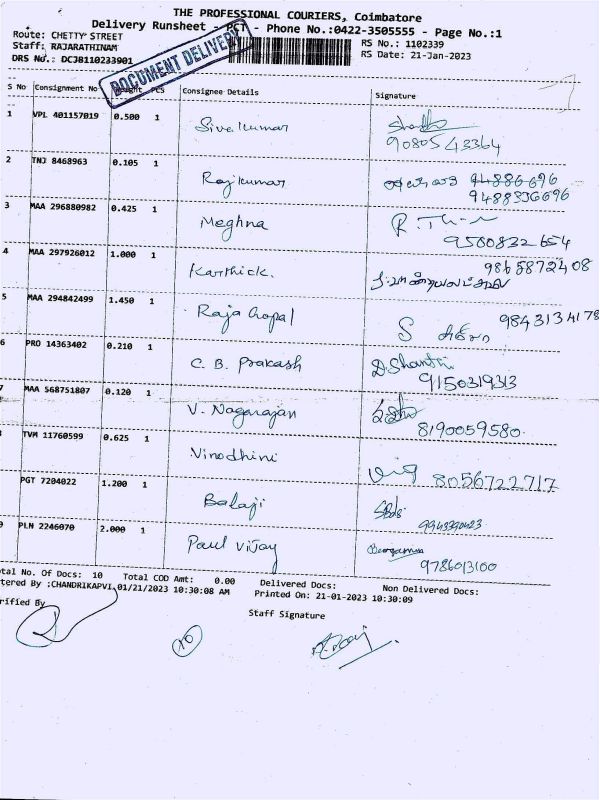 THE PROFESSIONAL COURIERS, Coimbatore
Delivery Runsheet - PCT - Phone No.:0422-3505555 - Page No.:1
Route: CHETTY STREET
RS No.: 1102339
Staff: RAJARATHINAM
RS Date: 21-Jan-2023
DRS No.: DCJB110233901
DOCUMENT DELIVERY
S No Consignment No Weight PCS Consignee Details Signature
1 VPL 401157019 0.500 1 Sivakumar
9080543364
2 TNJ 8468963 0.105 1 Rajkumar 94886696
9488336696
3 MAA 296880982 0.425 1 Meghna R.
9500832654
4 MAA 297926012 1.000 1 Karthick. 9865872408
5 MAA 294842499 1.450 1 Raja Gopal S 9843134178
6 PRO 14363402 0.210 1 C. B. Prakash D.Shanthi
9150319313
7 MAA 568751807 0.120 1 V. Nagarajan
8190059580
TVM 11760599 0.625 1 Vinodhini 8056722717
PGT 7204022 1.200 1 Balaji
9943390423
PLN 2246070 2.000 1 Paul Vijay
9786013100
tal No. Of Docs: 10 Total COD Amt: 0.00 Delivered Docs: Non Delivered Docs:
tered By :CHANDRIKAPVI 01/21/2023 10:30:08 AM Printed On: 21-01-2023 10:30:09
rified By
Staff Signature
10